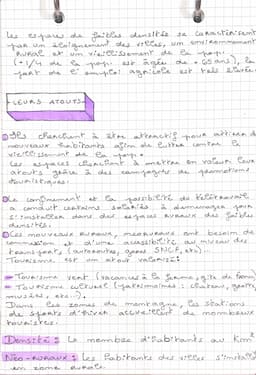 Les espaces de faibles densités se caractérisent
par un éloignement des villes, un environnement
rural et un vieillissement de la pop.
(+ 1/4 de la pop. est âgée de + 65 ans), la
part de l'emploi agricole est très élevée.
LEURS ATOUTS
Ils cherchent à être attractif pour attirer de
nouveaux habitants afin de lutter contre le
vieillissement de la pop.
Ces espaces cherchent à mettre en valeur leur
atouts grâce à des campagnes de promotions
touristiques.
Le confinement et la possibilité de télétravail
a conduit certains salariés à déménager pour
s'installer dans des espaces ruraux des faibles
densités.
Ces nouveaux ruraux, néoruraux ont besoin de
connexion et d'une accessibilité au niveau des
transports (autoroutes, gares SNCF, etc).
Tourisme est un atout valorisé:
- Tourisme vert (vacances à la ferme, gîte de
- Tourisme culturel (patrimoines: château, grotte,
musées, etc...).
Dans les zones de montagne, les stations
de sports d'hiver accueillent de nombreux
touristes.
Densité: Le nombre d'habitants au Km²
Néo-ruraux: Les habitants des villes s'install
en zone rurale.